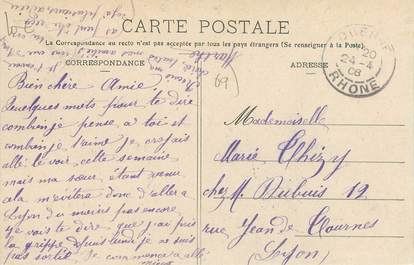 CARTE POSTALE
La Correspondance au recto n'est pas acceptée par tous les pays étrangers (Se renseigner à la Poste).
CORRESPONDANCE
ADRESSE
20
24-4
08
RHONE
69
Bien chère Amie
Quelques mots pour te dire
combien je pense a toi et
combien je t'aime je croyais
allé te voir cette semaine
mais ma sœur étant venue
cela m'évitera donc d'aller a
Lyon du moins pas encore
je vais te dire que j'ai pris
la grippe depuis lundi je ne suis
pas sortie je commence a allé
mieux
Mademoiselle
Marie Chizy
chez M. Dubuis 12
rue Jean de Tournes
Lyon